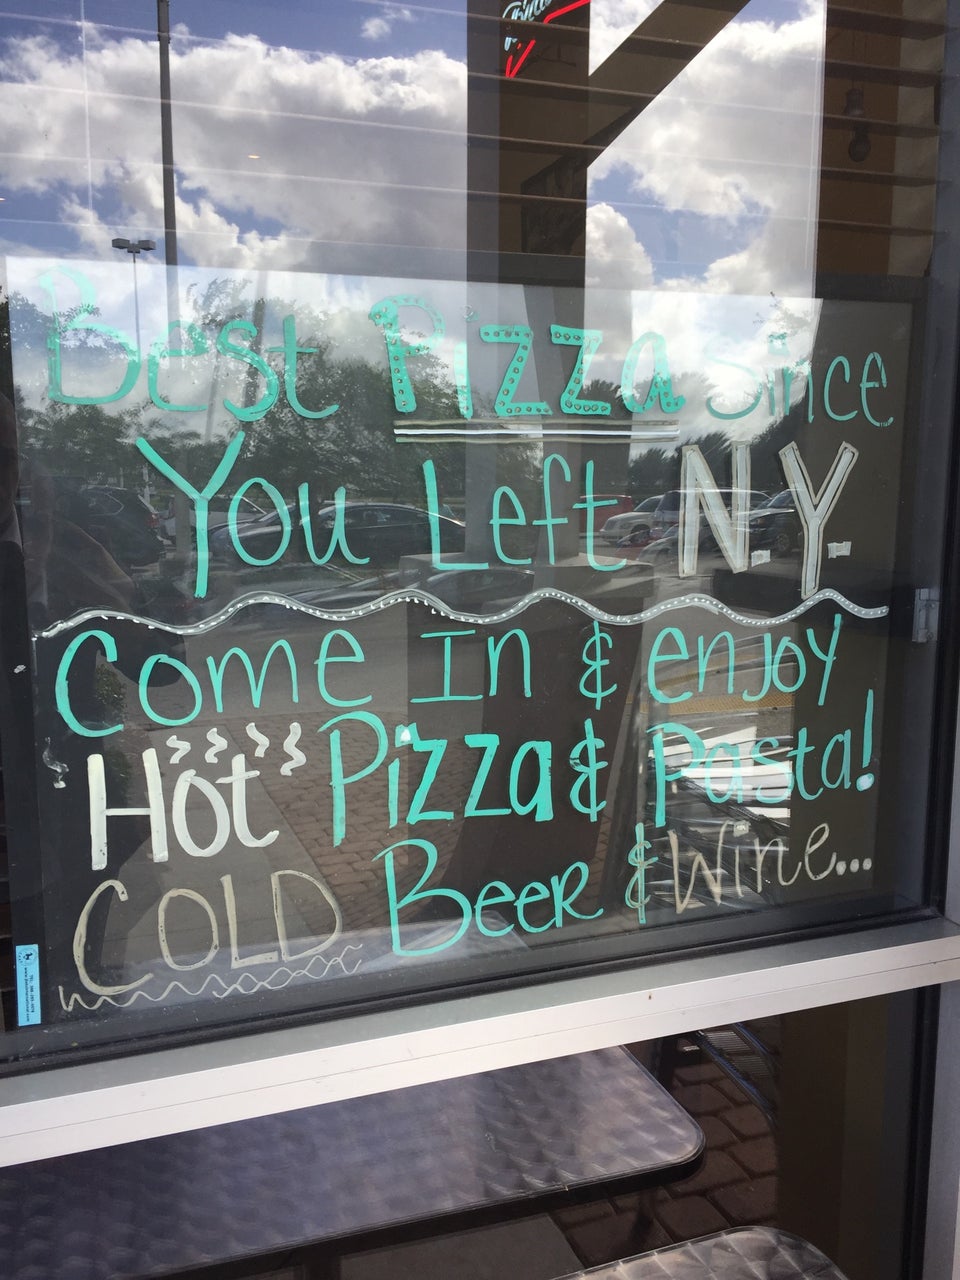 Best Pizza since
You Left N.Y.
Come In & enjoy
Hot Pizza & Pasta!
COLD BEER & Wine...